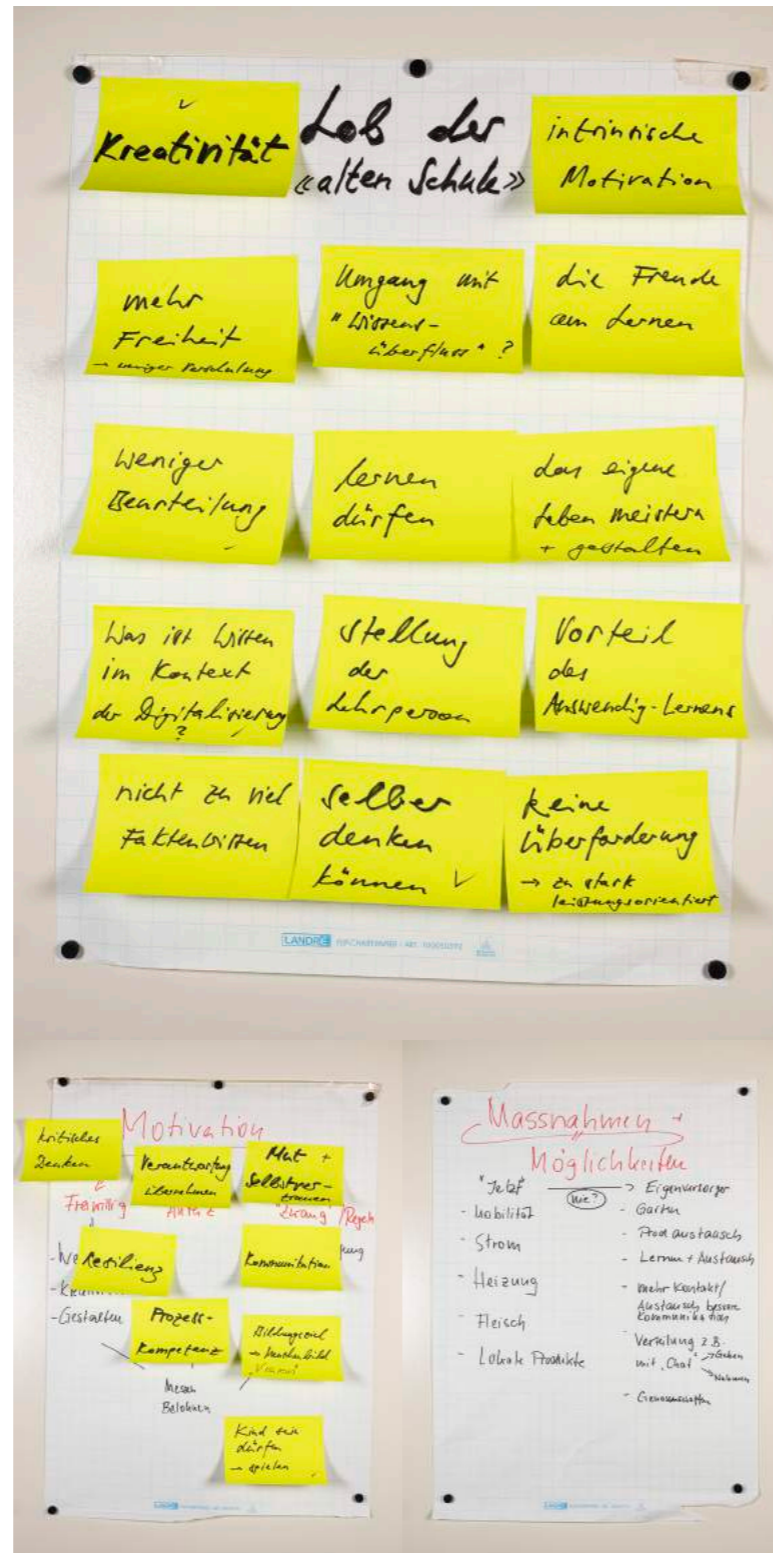 Kreativität
Lob der
«alten Schule»
intrinsische
Motivation
mehr
Freiheit
→ weniger Verschulung
Umgang mit
"Wissens-
überfluss" ?
die Freude
am Lernen
weniger
Beurteilung
lernen
dürfen
das eigene
Leben meistern
+ gestalten
Was ist Wissen
im Kontext
der Digitalisierung
?
Stellung
der
Lehrperson
Vorteil
des
Auswendig-Lernens
nicht zu viel
Faktenwissen
selber
denken
können
keine
Überforderung
→ zu stark
leistungsorientiert
LANDRÉ
Motivation
kritisches
Denken
Verantwortung
übernehmen
Mut +
Selbstver-
trauen
Freiwillig
"Zwang" / Regeln
Resilienz
Kommunikation
- Gestalten
Prozess-
Kompetenz
Bildungsziel
→ Menschenbild
Messen
Belohnen
Kind sein
dürfen
→ spielen
Massnahmen +
Möglichkeiten
"Jetzt"
Wie?
→ Eigenversorger
- Mobilität
- Strom
- Heizung
- Fleisch
- Lokale Produkte
- Garten
- Prod austausch
- Lernen + Austausch
- mehr Kontakt/
Austausch bessere
Kommunikation
- Verteilung z.B.
mit "Chat" → Geben
→ Nehmen
- Genossenschaften